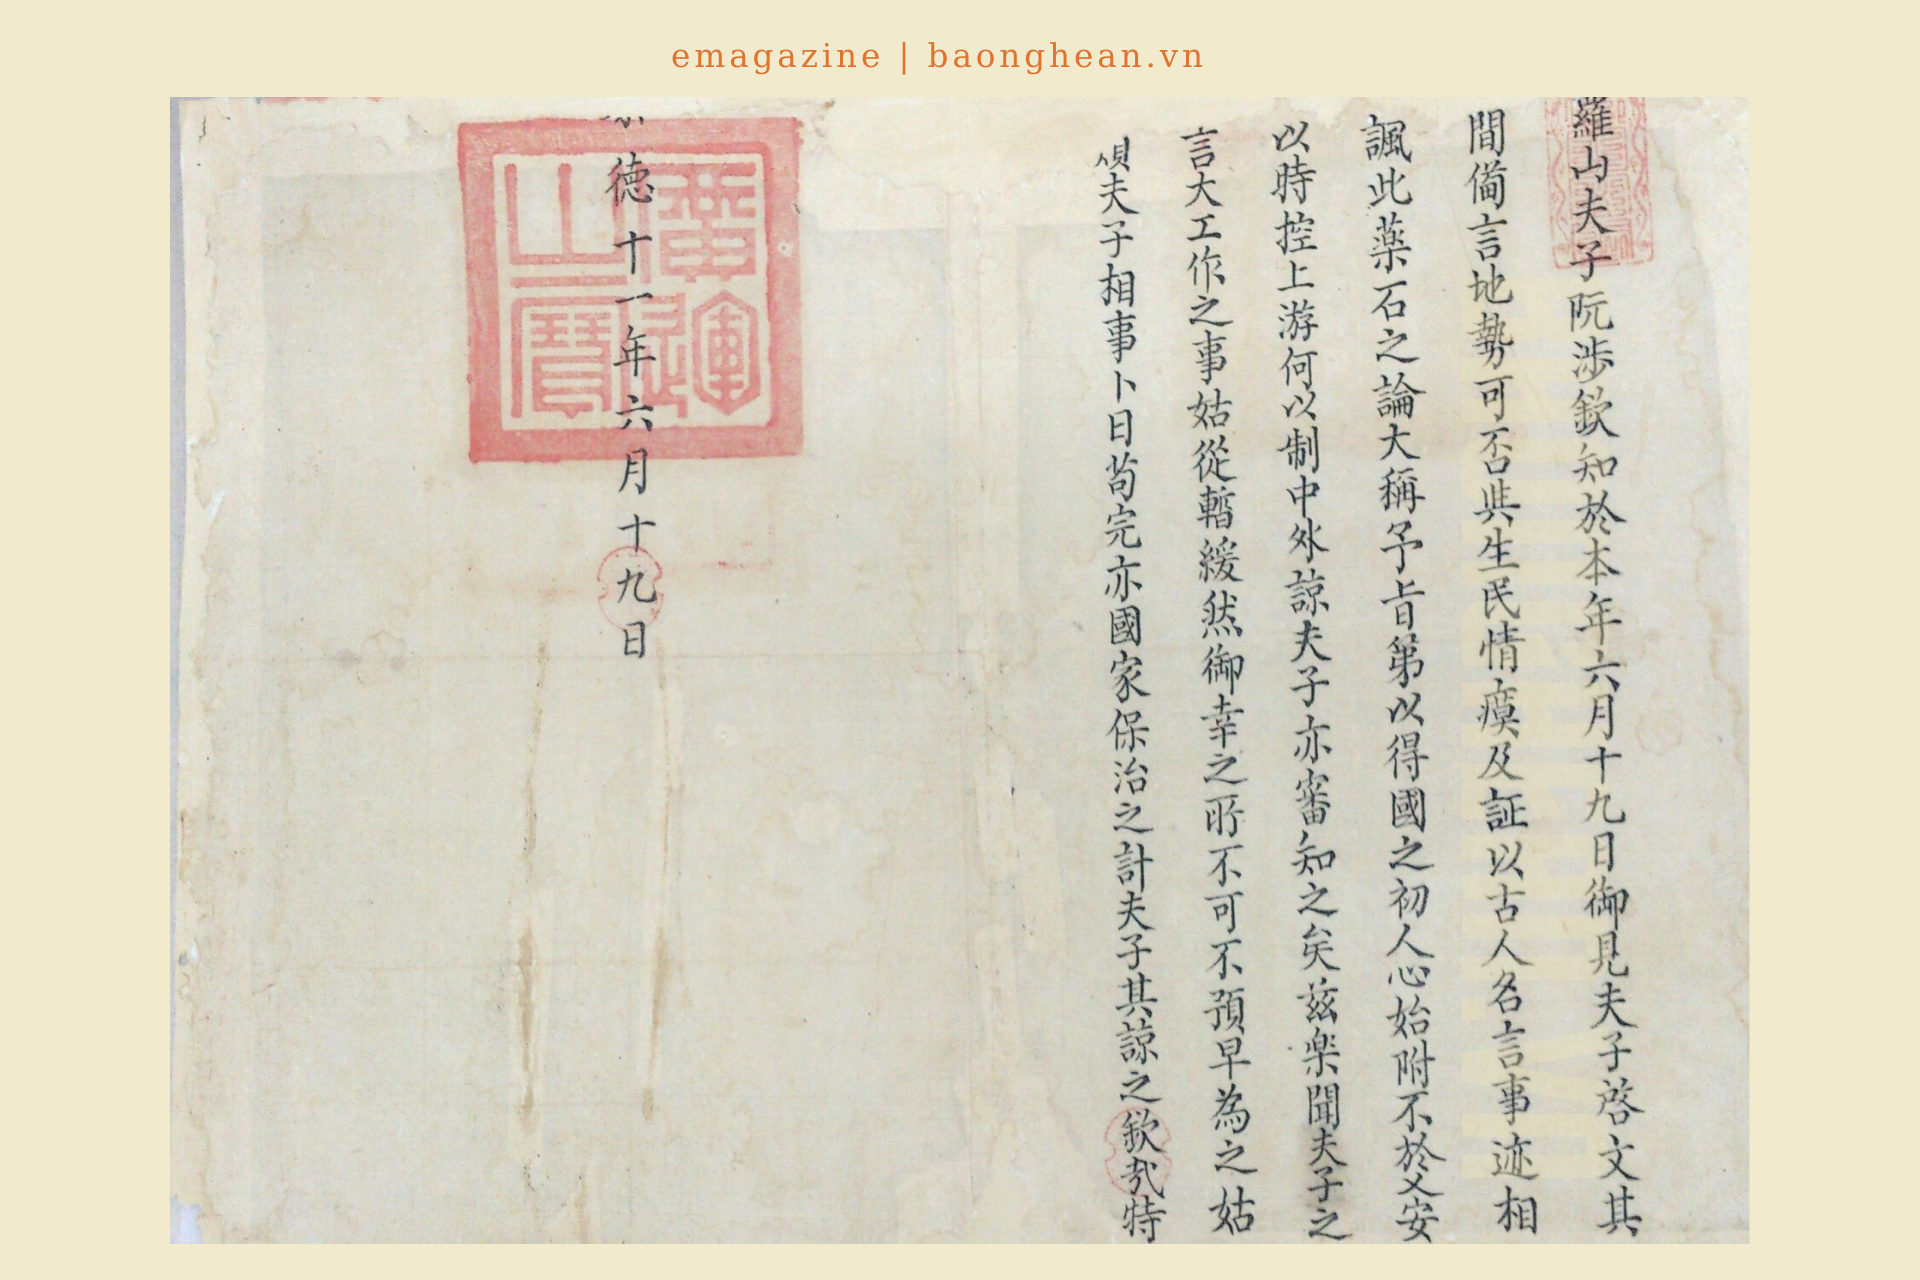 emagazine | baonghean.vn
羅山夫子阮涉欽知於本年六月十九日御見夫子啓文其
間備言地勢可否與生民情瘼及証以古人名言事迹相
諷此藥石之論大稱予旨第以得國之初人心始附不於乂安
以時控上游何以制中外諒夫子亦審知之矣茲樂聞夫子之
言大工作之事姑從暫緩然御幸之所不可不預早為之姑
煩夫子相事卜日苟完亦國家保治之計夫子其諒之欽哉特
德十一年六月十九日